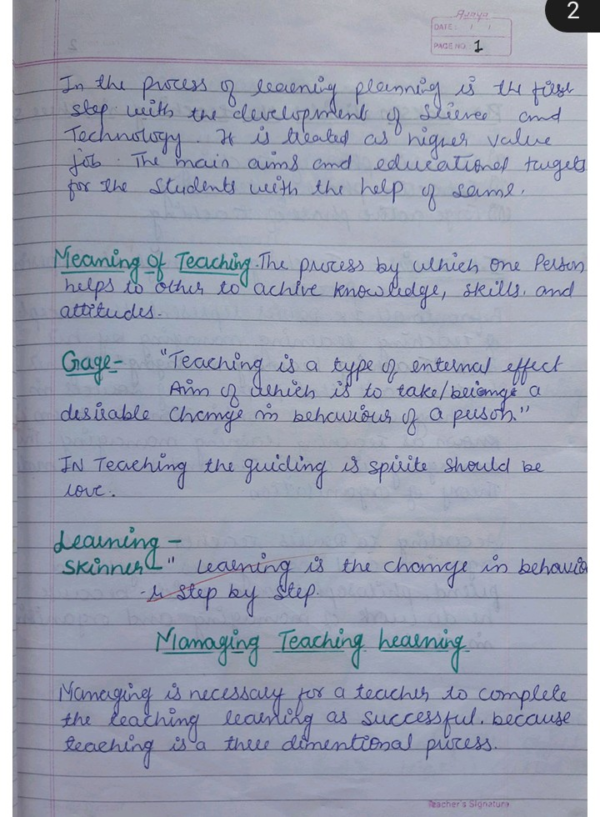 2
Ajaya
DATE: / /
PAGE NO. 1
In the process of learning planning is the first
step with the development of Science and
Technology. It is treated as higher value
job. The main aims and educational targets
for the students with the help of same.
Meaning of Teaching. The process by which one Person
helps to other to achive knowledge, skills and
attitudes.
Gage- "Teaching is a type of external effect
Aim of which is to take/ a
desirable change in behaviour of a person"
IN Teaching the guiding is spirite should be
love.
Learning -
Skinner - " Learning is the change in behavio
step by step.
Managing Teaching Learning
Managing is necessary for a teacher to complete
the teaching learning as successful. because
teaching is a three dimentional process.
Teacher's Signature